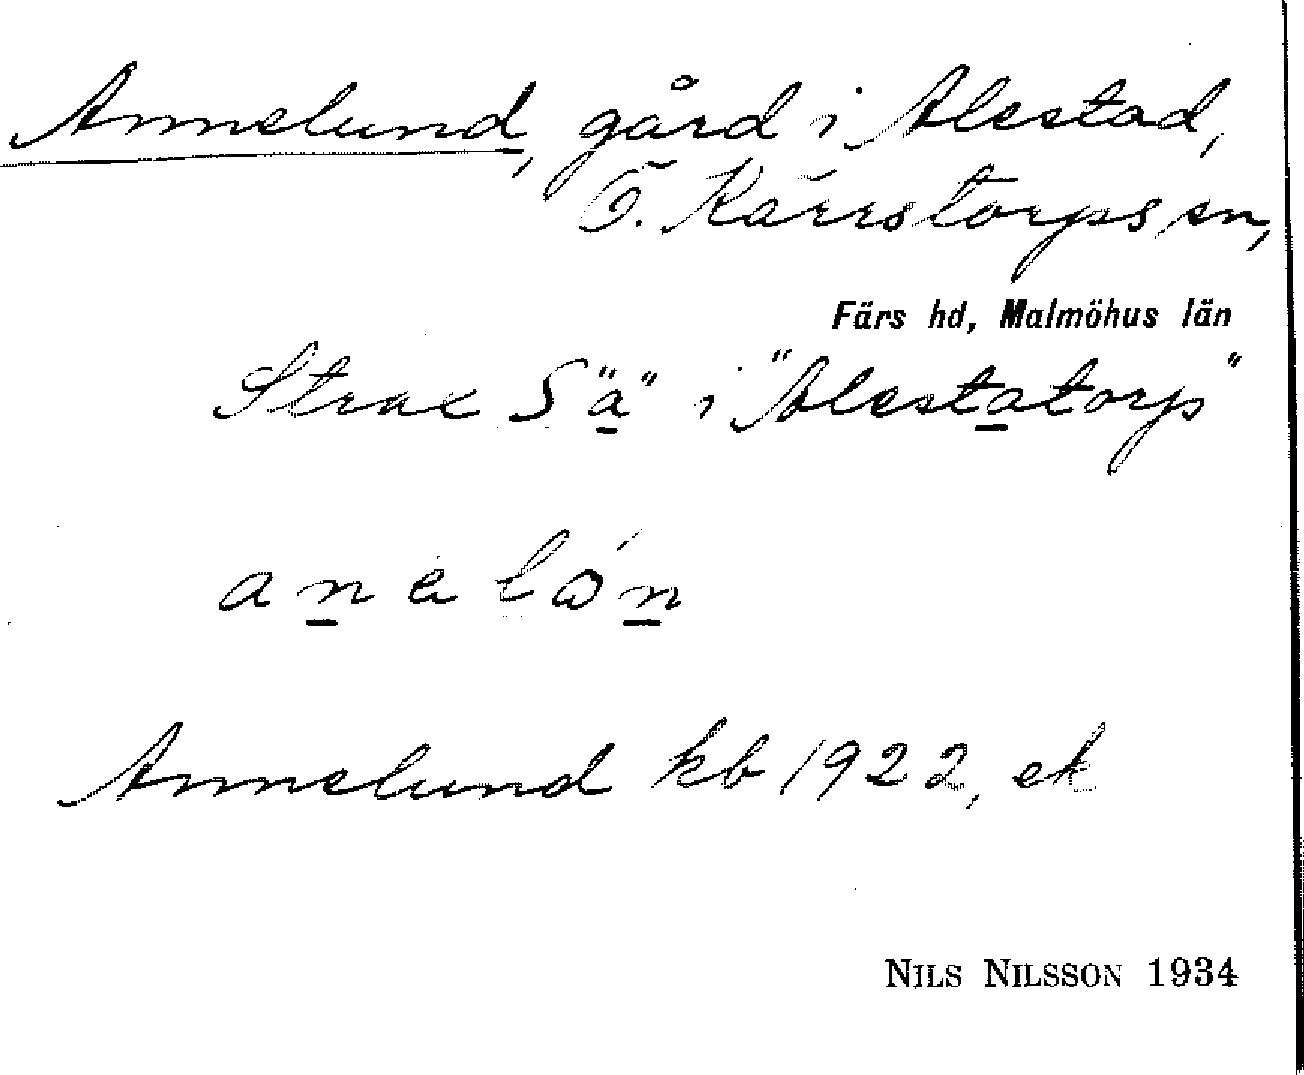 Annelund, gård i Alestad,
Ö. Kärrstorps sn,
Färs hd, Malmöhus län
Strax S "a" i "Alestatorp"
Annelund kb 1922, ek
NILS NILSSON 1934